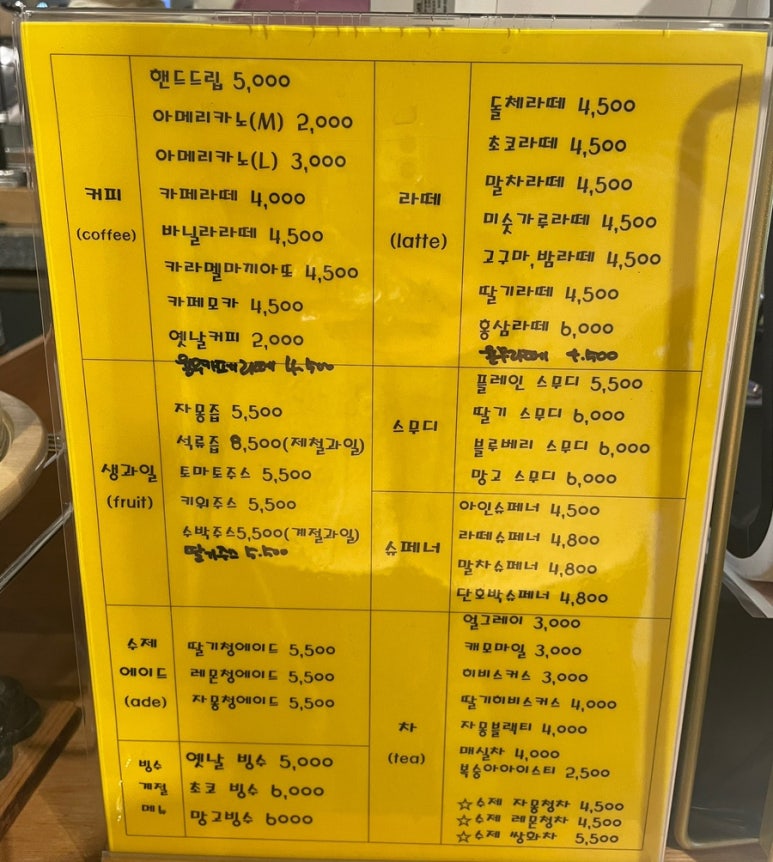 커피
(coffee)
핸드드립 5,000
아메리카노(M) 2,000
아메리카노(L) 3,000
카페라떼 4,000
바닐라라떼 4,500
카라멜마끼아또 4,500
카페모카 4,500
옛날커피 2,000
카페라떼 4.500
생과일
(fruit)
자몽즙 5,500
석류즙 8,500(제철과일)
토마토주스 5,500
키위주스 5,500
수박주스5,500(계절과일)
딸기주스 5.500
수제
에이드
(ade)
딸기청에이드 5,500
레몬청에이드 5,500
자몽청에이드 5,500
빙수
계절
메뉴
옛날 빙수 5,000
초코 빙수 6,000
망고빙수 6000
라떼
(latte)
돌체라떼 4,500
초코라떼 4,500
말차라떼 4,500
미숫가루라떼 4,500
고구마,밤라떼 4,500
딸기라떼 4,500
홍삼라떼 6,000
스무디
플레인 스무디 5,500
딸기 스무디 6,000
블루베리 스무디 6,000
망고 스무디 6,000
슈페너
아인슈페너 4,500
라떼슈페너 4,800
말차슈페너 4,800
단호박슈페너 4,800
차
(tea)
얼그레이 3,000
캐모마일 3,000
히비스커스 3,000
딸기히비스커스 4,000
자몽블랙티 4,000
매실차 4,000
복숭아아이스티 2,500
☆수제 자몽청차 4,500
☆수제 레몬청차 4,500
☆수제 쌍화차 5,500